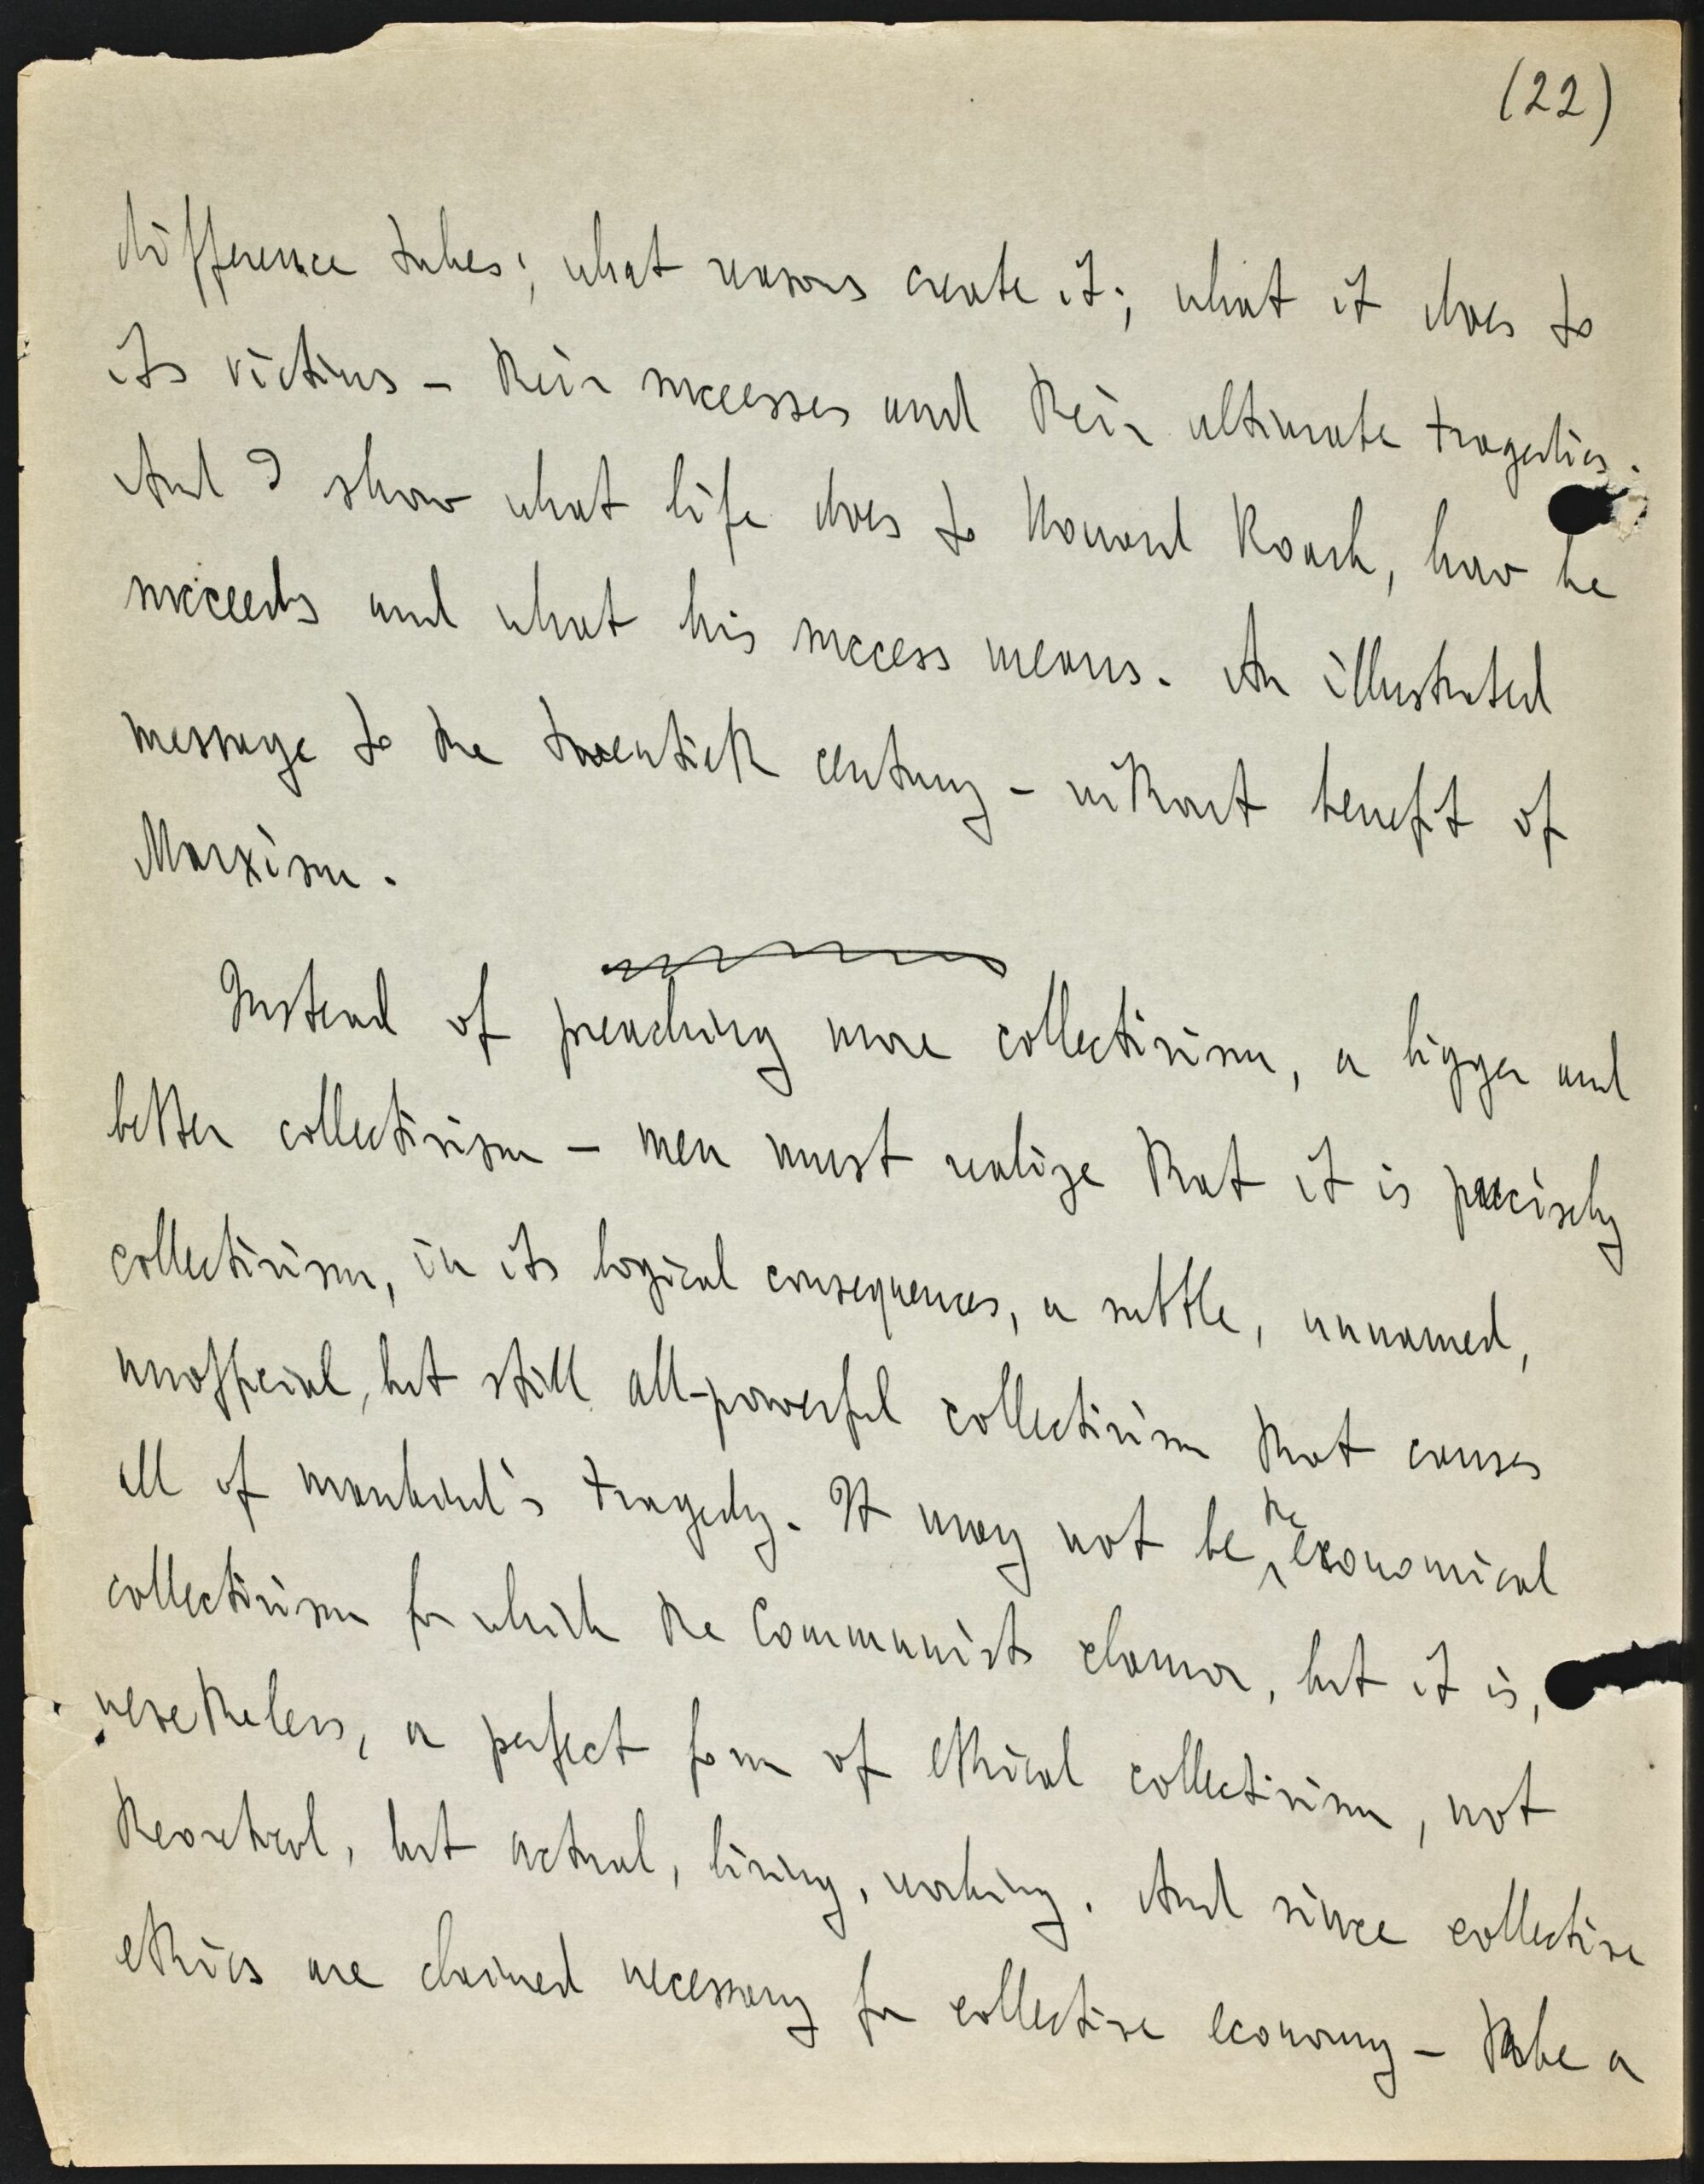 (22)
difference takes; what reasons create it; what it does to
its victims – their successes and their ultimate tragedies.
And I show what life does to Howard Roark, how he
succeeds and what his success means. An illustrated
message to the twentieth century – without benefit of
Marxism.
Instead of preaching more collectivism, a bigger and
better collectivism – men must realize that it is precisely
collectivism, in its logical consequences, a subtle, unnamed,
unofficial, but still all-powerful collectivism that causes
all of mankind's tragedy. It may not be the economical
collectivism for which the Communists clamor, but it is,
nevertheless, a perfect form of ethical collectivism, not
theoretical, but actual, living, working. And since collective
ethics are claimed necessary for collective economy – take a